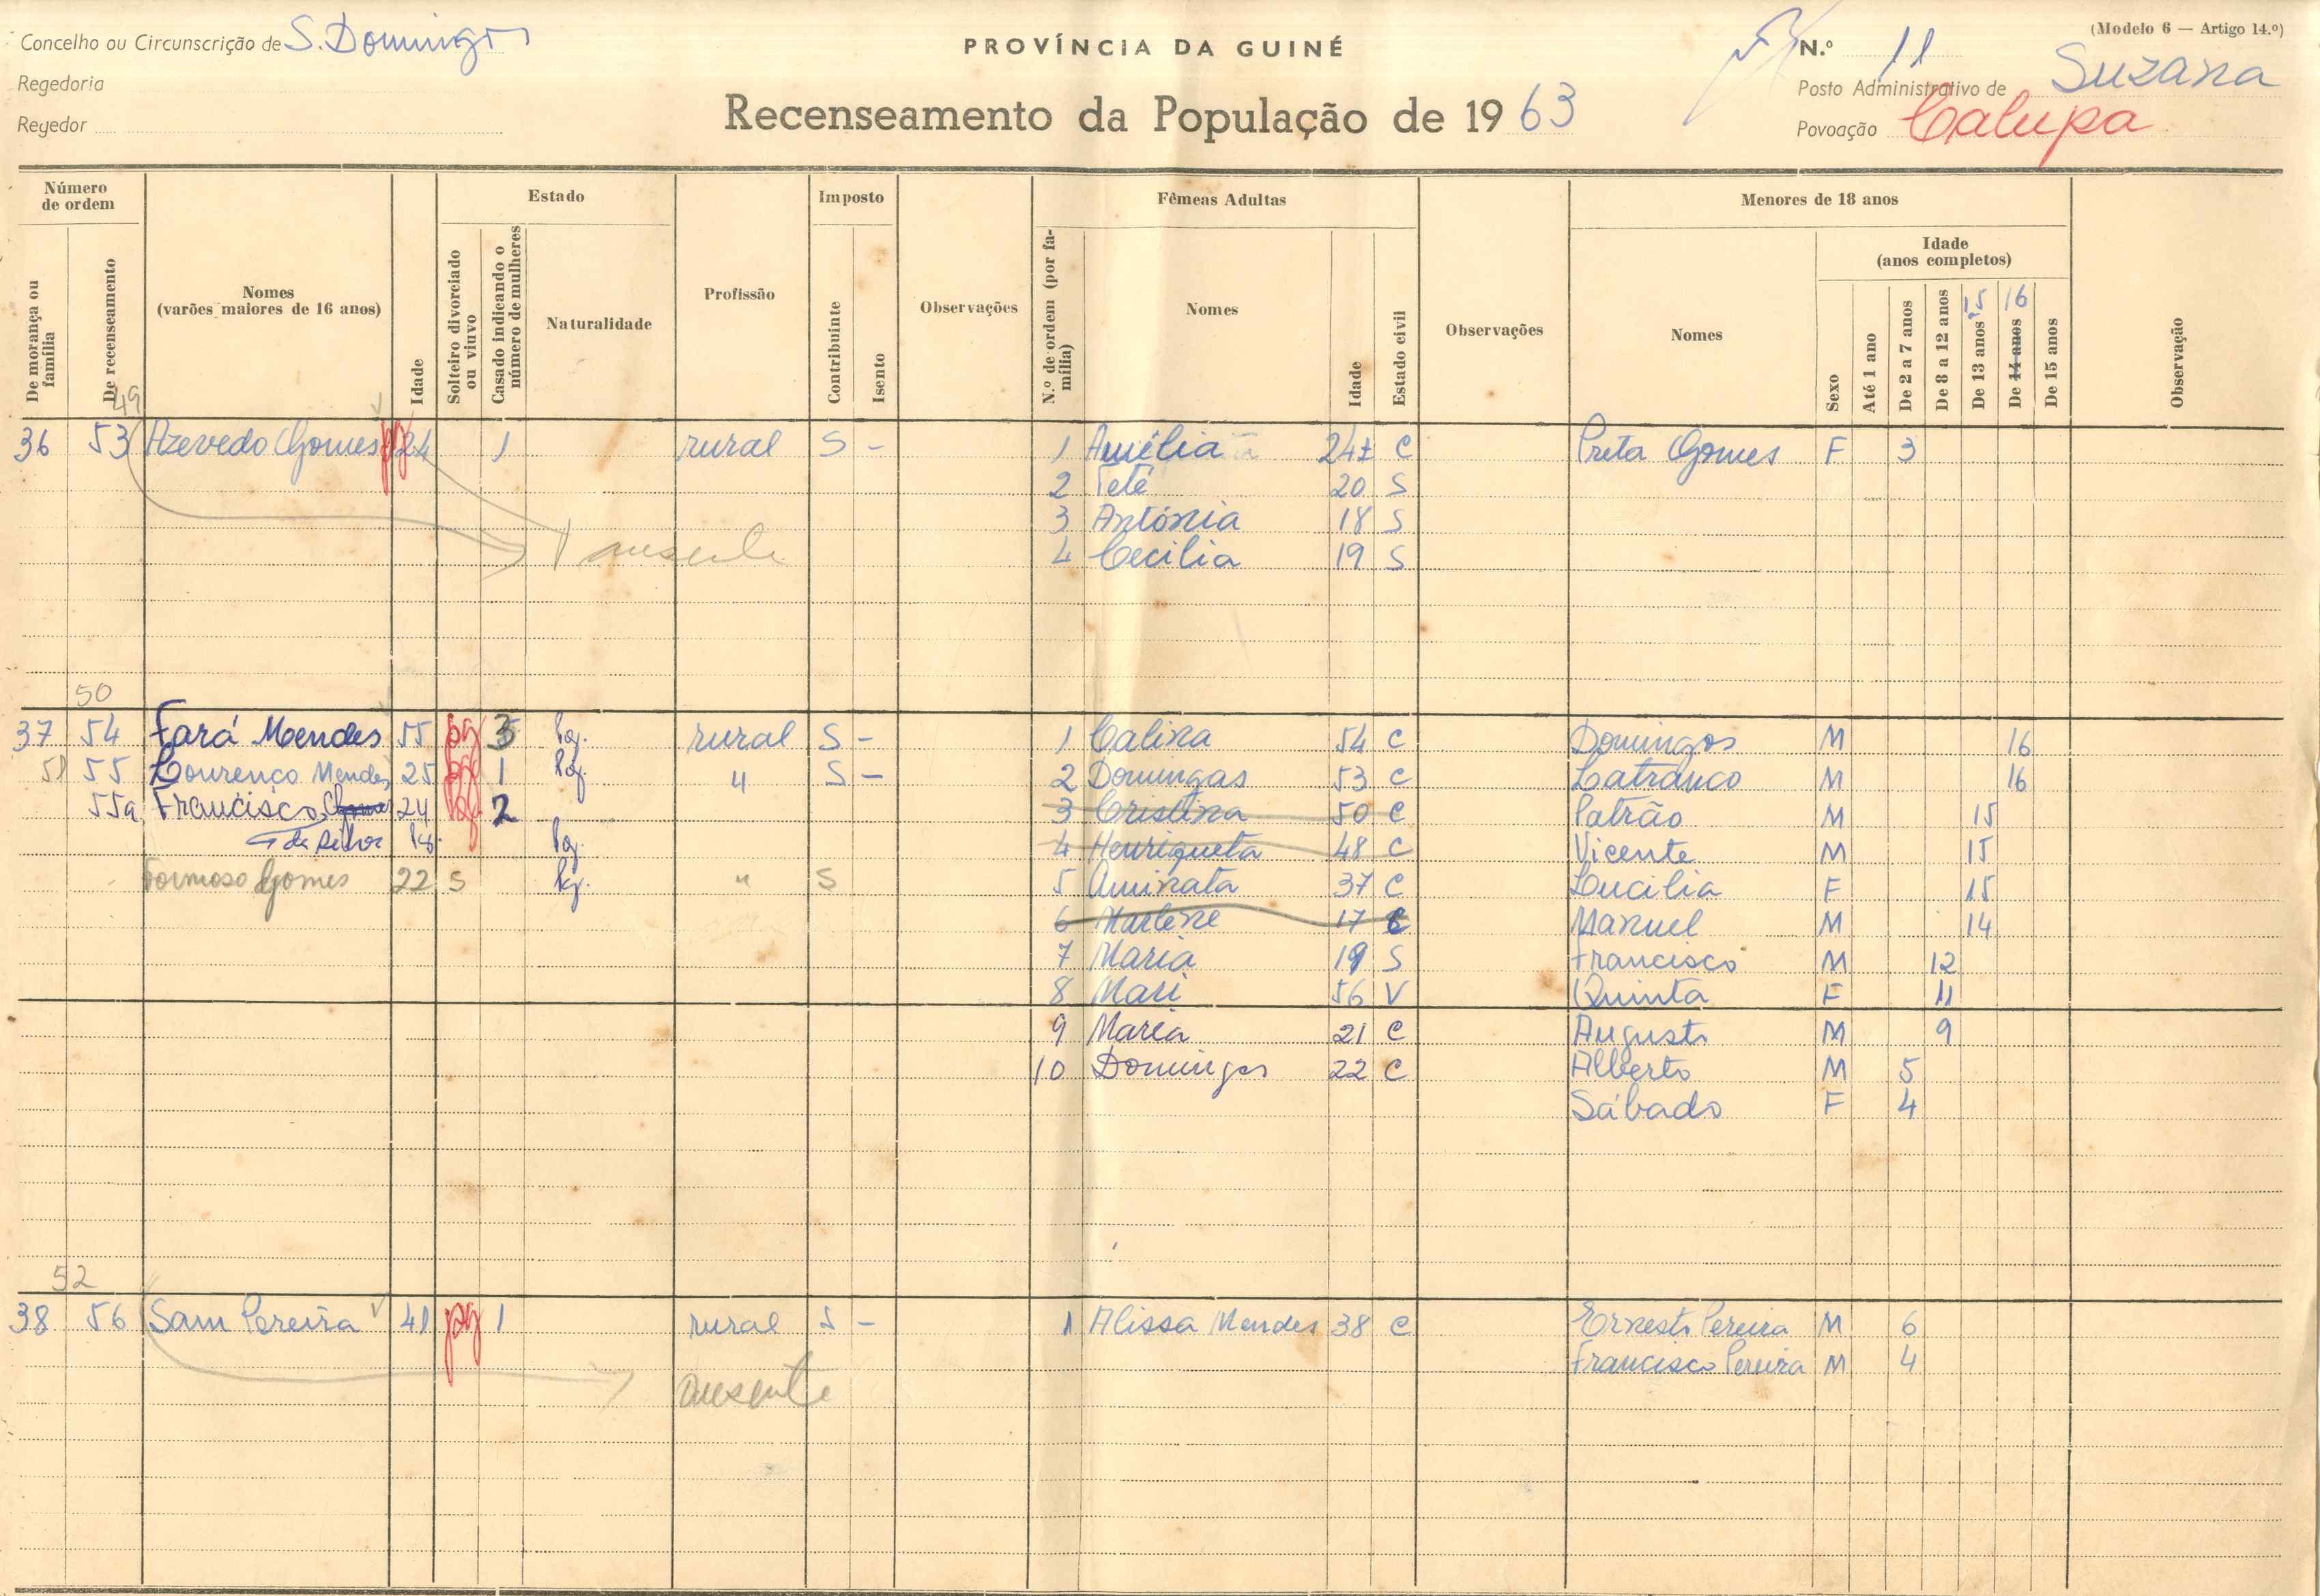 Concelho ou Circunscrição de S. Domingos
Regedoria
Reyedor
PROVÍNCIA DA GUINÉ
Recenseamento da População de 19 63
(Modelo 6 — Artigo 14.º)
N.º 11
Posto Administrativo de Suzana
Povoação Calupa
Número de ordem
De morança ou família
De recenseamento
Nomes (varões maiores de 16 anos)
Idade
Estado
Solteiro divorciado ou viuvo
Casado indicando o número de mulheres
Naturalidade
Profissão
Imposto
Contribuinte
Isento
Observações
Fêmeas Adultas
N.º de ordem (por família)
Nomes
Idade
Estado civil
Observações
Menores de 18 anos
Nomes
Sexo
Idade (anos completos)
Até 1 ano
De 2 a 7 anos
De 8 a 12 anos
15
De 13 anos
16
De 14 anos
De 15 anos
Observação
49
36 53 Azevedo Gomes pg 24 1 rural S - 1 Amélia 24 C Preta Gomes F 3
2 Teté 20 S
3 Antónia 18 S
ausente 4 Cecilia 19 S
50
37 54 Fará Mendes 55 pg 3 Pg. rural S - 1 Calina 54 C Domingos M 16
51 55 Lourenço Mendes 25 pg 1 Pg. " S - 2 Domingas 53 C Lafranco M 16
55a Francisco Gomes 24 pg 2 3 Cristina 50 C Patrão M 15
da Silva Pg. 4 Henriqueta 48 C Vicente M 15
Formoso Gomes 22 S Pg. " S 5 Aminata 37 C Lucilia F 15
6 Marlene 17 C Manuel M 14
7 Maria 19 S Francisco M 12
8 Mari 56 V Quinta F 11
9 Maria 21 C Augusto M 9
10 Domingas 22 C Alberto M 5
Sábado F 4
52
38 56 Sam Pereira 41 pg 1 rural S - 1 Alissa Mendes 38 C Ernesto Pereira M 6
Francisco Pereira M 4
ausente